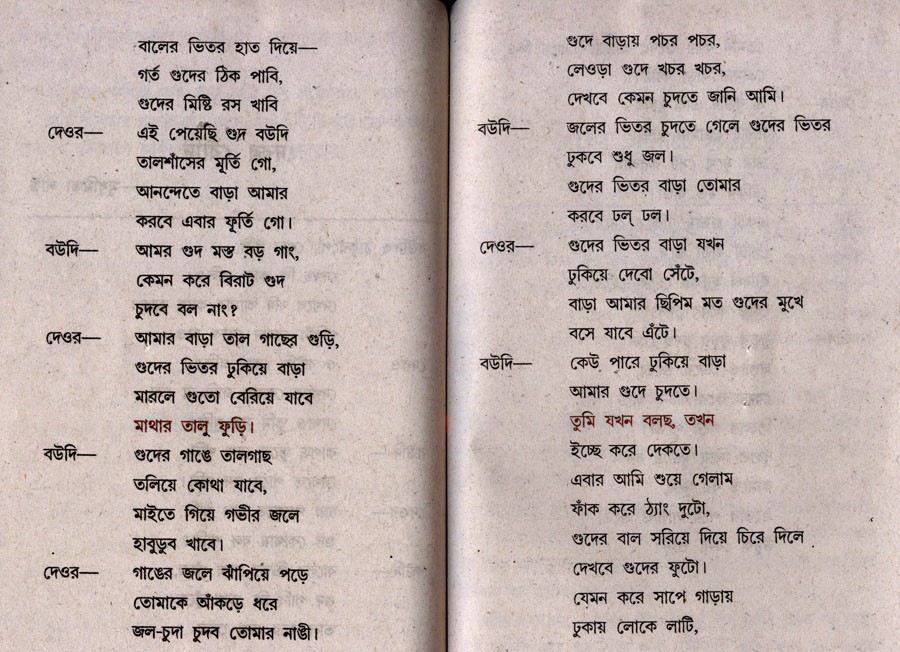 বালের ভিতর হাত দিয়ে—
গর্ত গুদের ঠিক পাবি,
গুদের মিষ্টি রস খাবি
দেওর— এই পেয়েছি গুদ বউদি
তালশাঁসের মূর্তি গো,
আনন্দেতে বাড়া আমার
করবে এবার ফূর্তি গো।
বউদি— আমর গুদ মস্ত বড় গাং,
কেমন করে বিরাট গুদ
চুদবে বল নাং?
দেওর— আমার বাড়া তাল গাছের গুড়ি,
গুদের ভিতর ঢুকিয়ে বাড়া
মারলে গুতো বেরিয়ে যাবে
মাথার তালু ফুড়ি।
বউদি— গুদের গাঙে তালগাছ
তলিয়ে কোথা যাবে,
মাইতে গিয়ে গভীর জলে
হাবুডুব খাবে।
দেওর— গাঙের জলে ঝাঁপিয়ে পড়ে
তোমাকে আঁকড়ে ধরে
জল-চুদা চুদব তোমার নাঙী।
গুদে বাড়ায় পচর পচর,
লেওড়া গুদে খচর খচর,
দেখবে কেমন চুদতে জানি আমি।
বউদি— জলের ভিতর চুদতে গেলে গুদের ভিতর
ঢুকবে শুধু জল।
গুদের ভিতর বাড়া তোমার
করবে ঢল্ ঢল।
দেওর— গুদের ভিতর বাড়া যখন
ঢুকিয়ে দেবো সেঁটে,
বাড়া আমার ছিপিম মত গুদের মুখে
বসে যাবে এঁটে।
বউদি— কেউ পারে ঢুকিয়ে বাড়া
আমার গুদে চুদতে।
তুমি যখন বলছ, তখন
ইচ্ছে করে দেকতে।
এবার আমি শুয়ে গেলাম
ফাঁক করে ঠ্যাং দুটো,
গুদের বাল সরিয়ে দিয়ে চিরে দিলে
দেখবে গুদের ফুটো।
যেমন করে সাপে গাড়ায়
ঢুকায় লোকে লাটি,